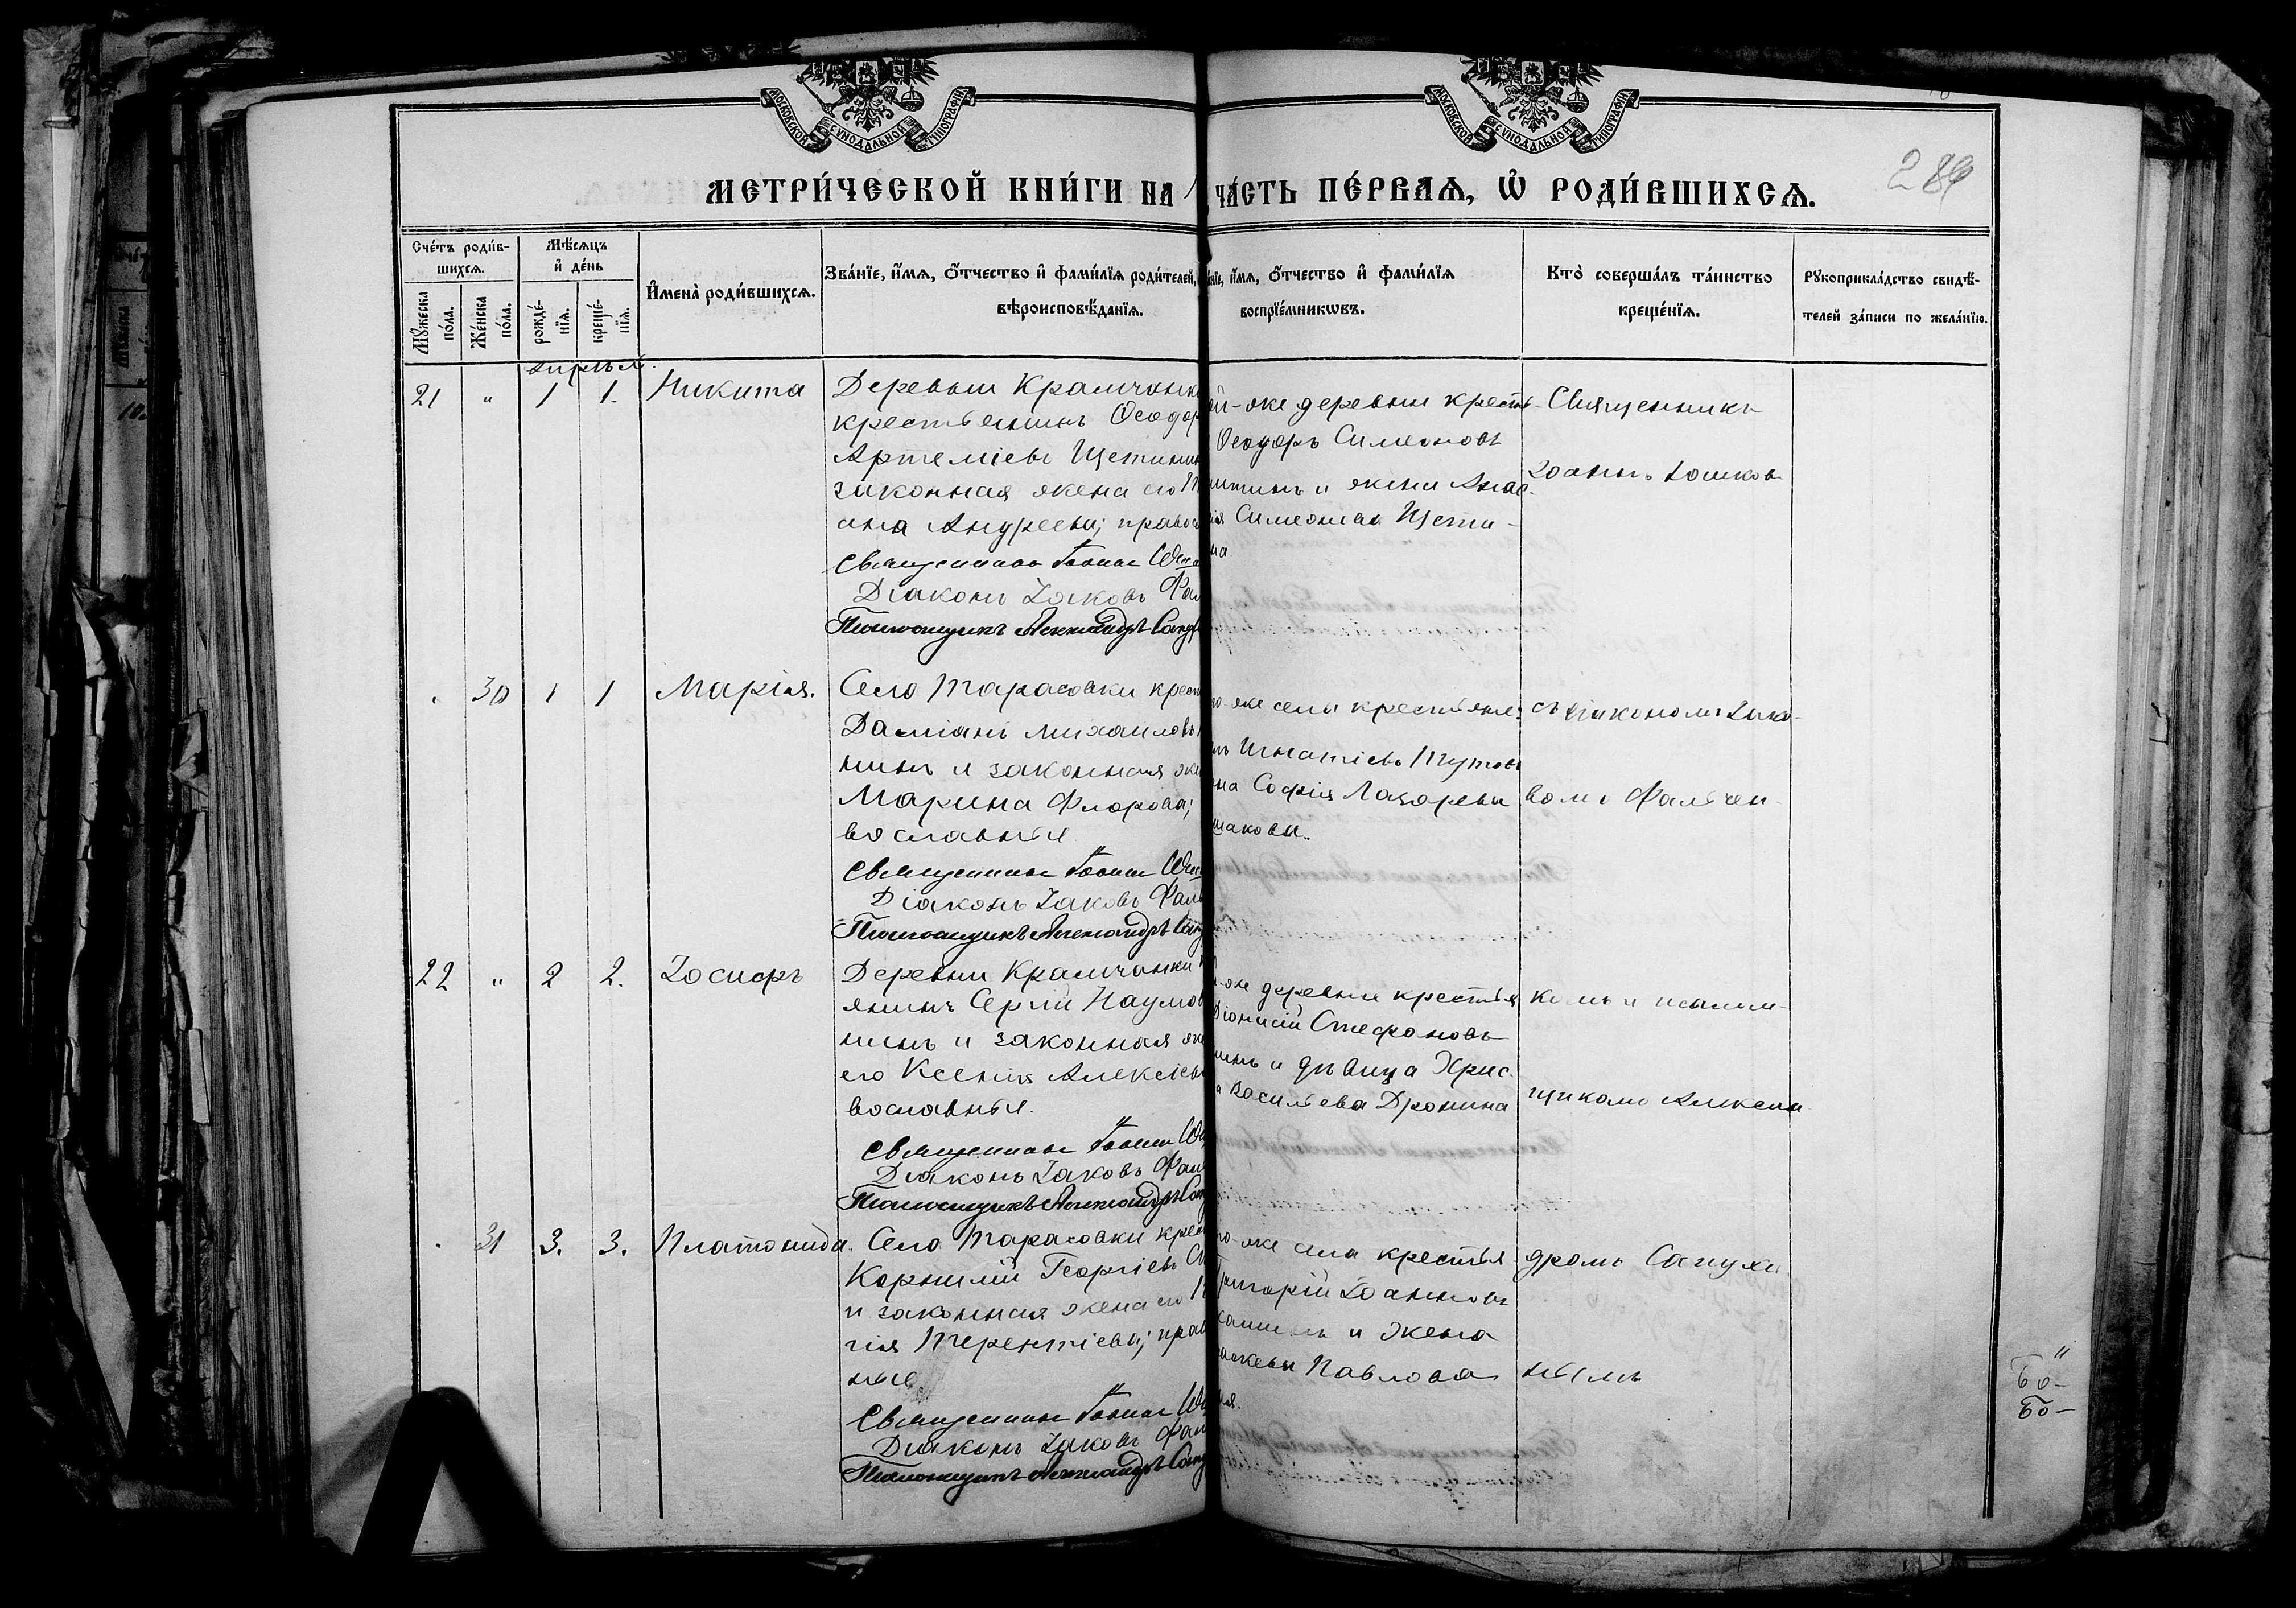 МОСКОВСКОЙ СѴНОДАЛЬНОЙ ТИПОГРАФІИ
МОСКОВСКОЙ СѴНОДАЛЬНОЙ ТИПОГРАФІИ
МЕТРИ́ЧЕСКОЙ КНИ́ГИ НА
ЧА́СТЬ ПЕ́РВАѦ, Ѡ҆ РОДИ́ВШИХСѦ.
Сче́тъ роди́в-
шихсѧ.
Мꙋ́жеска по́ла.
Же́нска по́ла.
Мѣ́сѧцъ
и҆ де́нь
рожде́-нїѧ.
креще́-нїѧ.
И҆мена̀ роди́вшихсѧ.
Зва́нїе, и҆́мѧ, ѻ҆́тчество и҆ фами́лїѧ роди́телей,
вѣроисповѣ́данїѧ.
а́нїе, и҆́мѧ, ѻ҆́тчество и҆ фами́лїѧ
воспрїе́мникѡвъ.
Кто̀ соверша́лъ та́инство
креще́нїѧ.
Рꙋкоприкла́дство свидѣ́-
телей за́писи по жела́нїю.
Апрѣль.
21 " 1 1. Никита
Деревни Крамчанк
крестьянинъ Ѳеодор
Артеміевъ Щетинин
законная жена его
ана Андреева; право
Священникъ Іоаннъ
Діаконъ Іаковъ Фал
Псаломщикъ Александръ Сапу
ой-же деревни крестья-
Ѳеодоръ Симеоновъ
и жена Анас-
ія Симеонова Щети-
на
Священникъ
Іоаннъ
. 30 1 1 Марія.
Села Тарасовки крест
Даміанъ Михаиловъ
нинъ и законная же
Марина Флорова;
вославные
Священникъ Іоаннъ
Діаконъ Іаковъ Фаль
Псаломщикъ Александръ Сапу
го-же села крестьяне:
Игнатіевъ
на Софія Лазарева
шакова.
съ діакономъ Іако-
вомъ Фальчен-
22 " 2 2. Іосифъ
Деревни Крамчанки
янинъ Сергій Наумов
нинъ и законная же
его Ксенія Алексіев
вославные.
Священникъ Іоаннъ
Діаконъ Іаковъ Фаль
Псаломщикъ Александръ Сапу
й-же деревни крестья
Діонисій Стефановъ
нинъ и дѣвица Хрис-
а Васильева Дронина
комъ и псалом-
щикомъ Алексан
. 31 3. 3. Платонида.
Села Тарасовки крес
Корнилій Георгіевъ
и законная жена его
гія Терентіева; прав
ные
Священникъ Іоаннъ
Діаконъ Іаковъ Фал
Псаломщикъ Александръ Сапу
го-же села крестья-
Григорій Іоанновъ
и жена
Павлова
дромъ Сапухи
нымъ